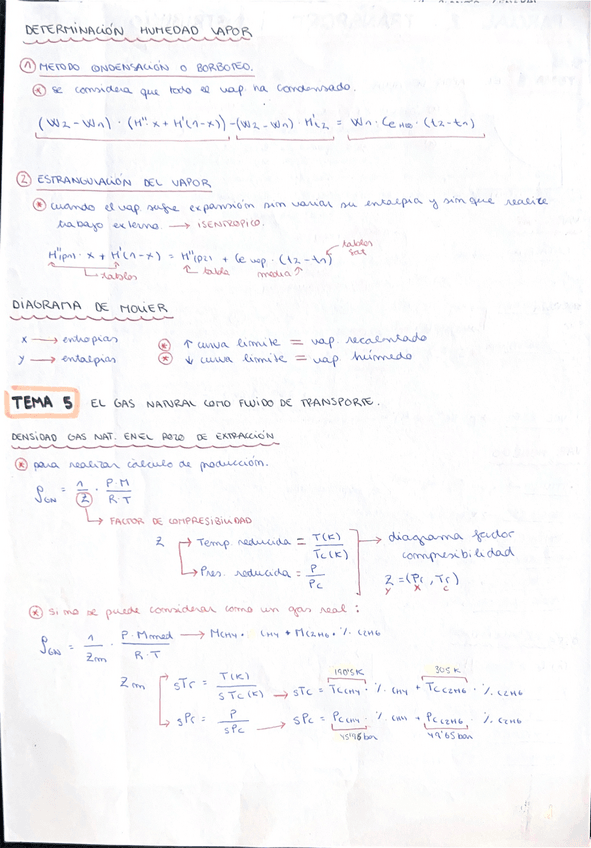 DETERMINACIÓN HUMEDAD VAPOR
① METODO CONDENSACIÓN O BORBOTEO.
* se considera que todo el vap ha condensado.
(W2 - W1) · (H''·x + H'(1-x)) - (W2 - W1) · H't2 = W1 · CeH2O · (t2-t1)
② ESTRANGULACIÓN DEL VAPOR
* cuando el vap sufre expansión sin variar su entalpia y sin que realice
trabajo externo → ISENTROPICO.
H''(P1) · x + H'(1-x) = H''(P2) + Ce vap · (t2-t1) tablas sat
tablas tabla media
DIAGRAMA DE MOLIER
x → entropias * ↑ curva limite = vap. recalentado
y → entalpias * ↓ curva limite = vap húmedo
TEMA 5 EL GAS NATURAL COMO FLUIDO DE TRANSPORTE.
DENSIDAD GAS NAT. EN EL POZO DE EXTRACCIÓN
* para realizar cálculo de producción.
ρGN = 1/Z · P·M/R·T
→ FACTOR DE COMPRESIBILIDAD
Z → Temp. reducida = T(K)/Tc(K) → diagrama factor compresibilidad
→ Pres. reducida = P/Pc Z = (Pr, Tr)
y x c
* si no se puede considerar como un gas real:
ρGN = 1/Zm · P·Mmed/R·T → MCH4 · CH4 + MC2H6 · % C2H6
190'5K 305K
Zm → sTr = T(K)/sTc(K) → sTc = TcCH4 · % CH4 + TcC2H6 · % C2H6
→ sPr = P/sPc → sPc = PcCH4 · % CH4 + PcC2H6 · % C2H6
45'96bar 49'65bar